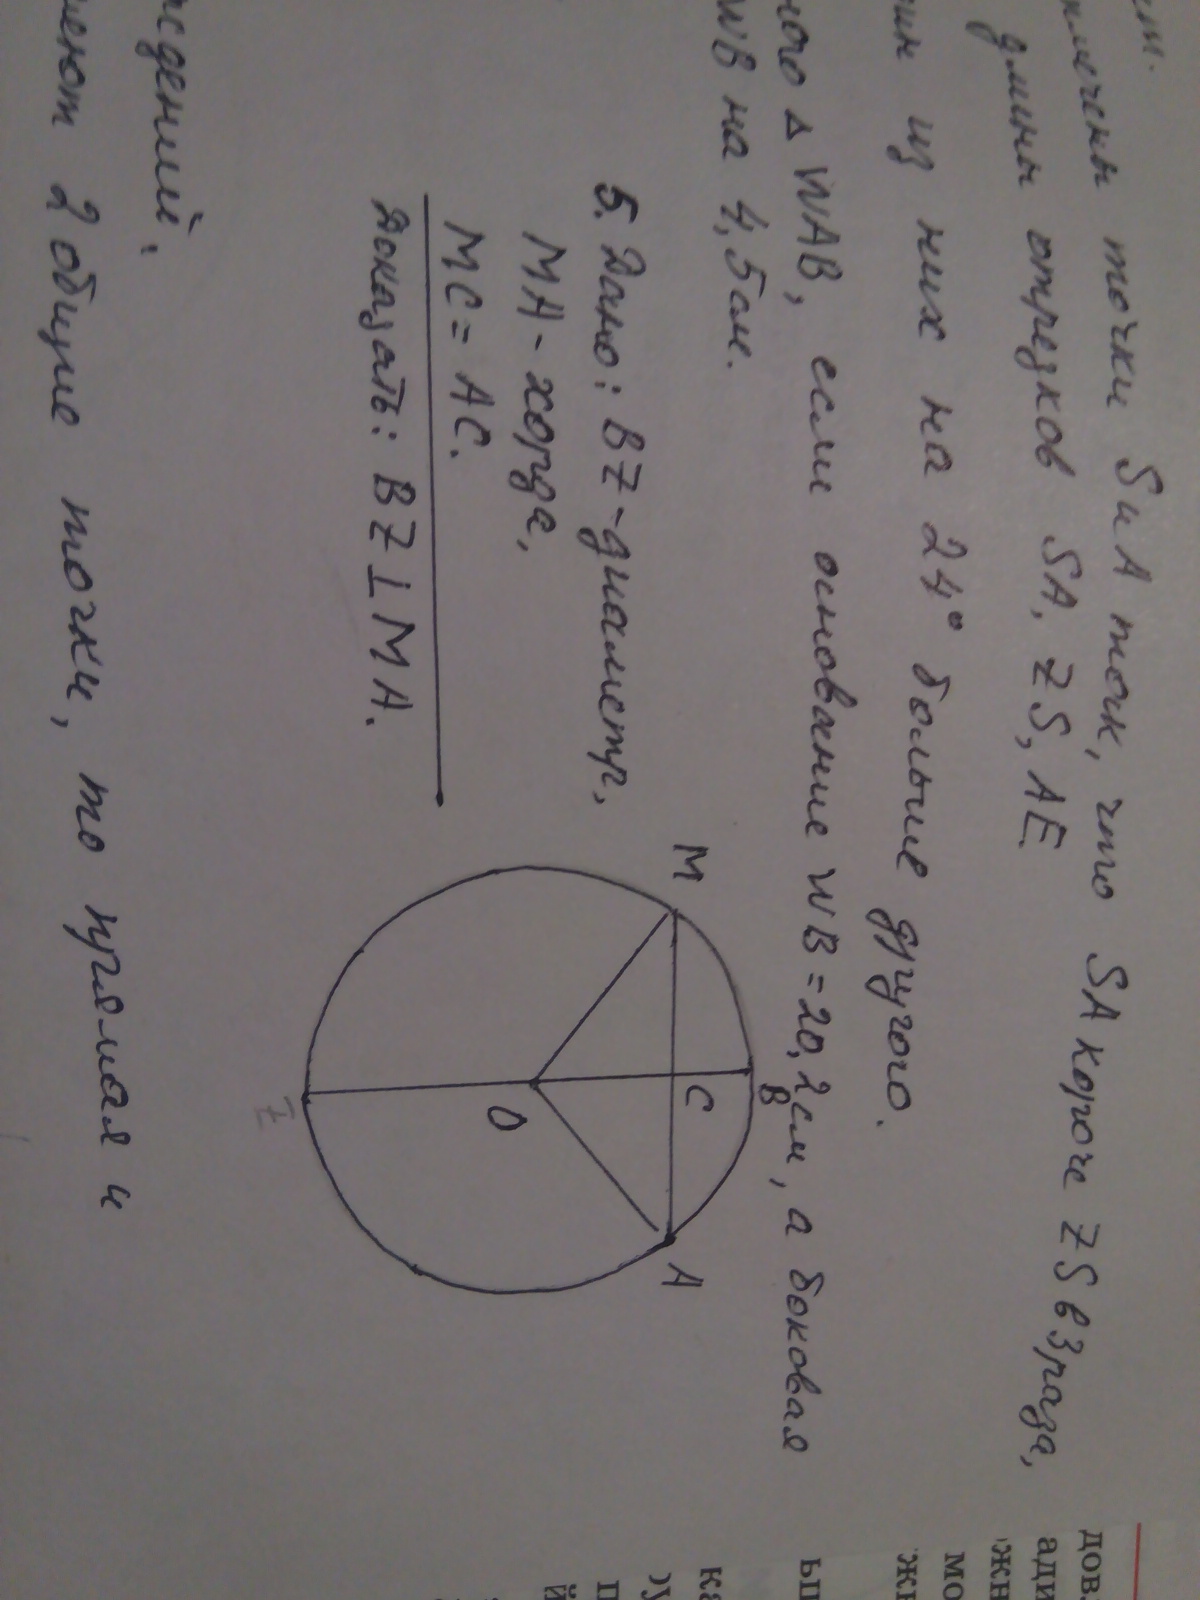 точки S и A так, что SA короче ZS в 3 раза,
длины отрезков SA, ZS, AE.
из них на 24° больше другого.
ного Δ WAB, если основание WB = 20,2 см, а боковая
WB на 4,5 см.
5. Дано: BZ - диаметр,
MA - хорда,
MC = AC.
Доказать: BZ ⊥ MA.
M
B
C
O
A
Z
ждений.
меют 2 общие точки, то прямая и
дов.
ади
жн
мо
жн
ьп
ка
оу
п
й